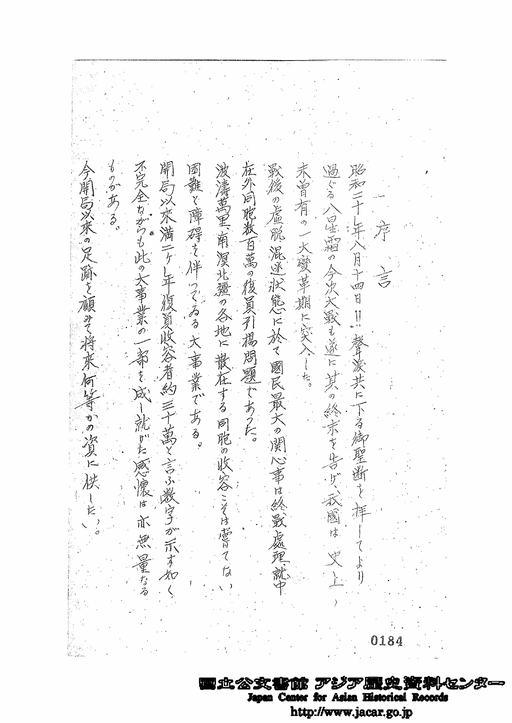 一 序言
昭和二十年八月十四日!! 聲淚共に下る御聖斷を拝してより
過ぐる八星霜の今次大戰も遂に其の終末を告げ、我國は史上、
未曾有の一大変革期に突入した。
戰後の虚脱混迷状態に於て國民最大の関心事は終戰處理、就中
在外同胞数百萬の復員引揚問題であった。
波濤萬里、南溟北疆の各地に散在する同胞の收容こそは嘗てない
困難と障碍を伴つてゐる大事業である。
開局以来満一ヶ年復員收容者約三十萬と言ふ数字が示す如く
不完全ながらも此の大事業の一部を成し就げた感懐は亦無量なる
ものがある。
今開局以来の足跡を顧みて将来何等かの資に供したい。
0184
国立公文書館 アジア歴史資料センター
Japan Center for Asian Historical Records
http://www.jacar.go.jp